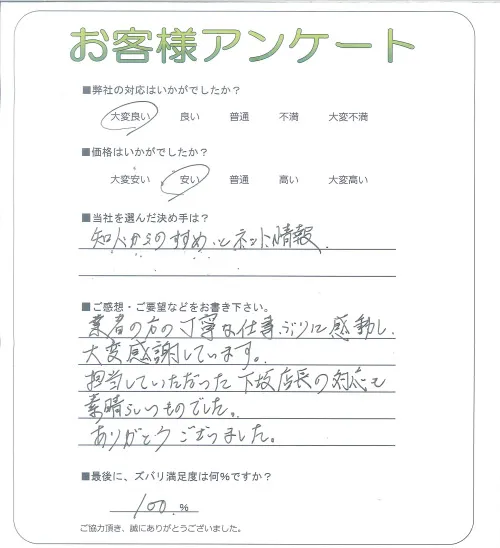 お客様アンケート
■弊社の対応はいかがでしたか？
大変良い 良い 普通 不満 大変不満
■価格はいかがでしたか？
大変安い 安い 普通 高い 大変高い
■当社を選んだ決め手は？
知人からのすすめ、とネット情報。
■ご感想・ご要望などをお書き下さい。
業者の方の丁寧な仕事ぶりに感動し、
大変感謝しています。
担当していただった下坂店長の対応も
素晴らしいものでした。
ありがとうございました。
■最後に、ズバリ満足度は何％ですか？
100.％
ご協力頂き、誠にありがとうございました。